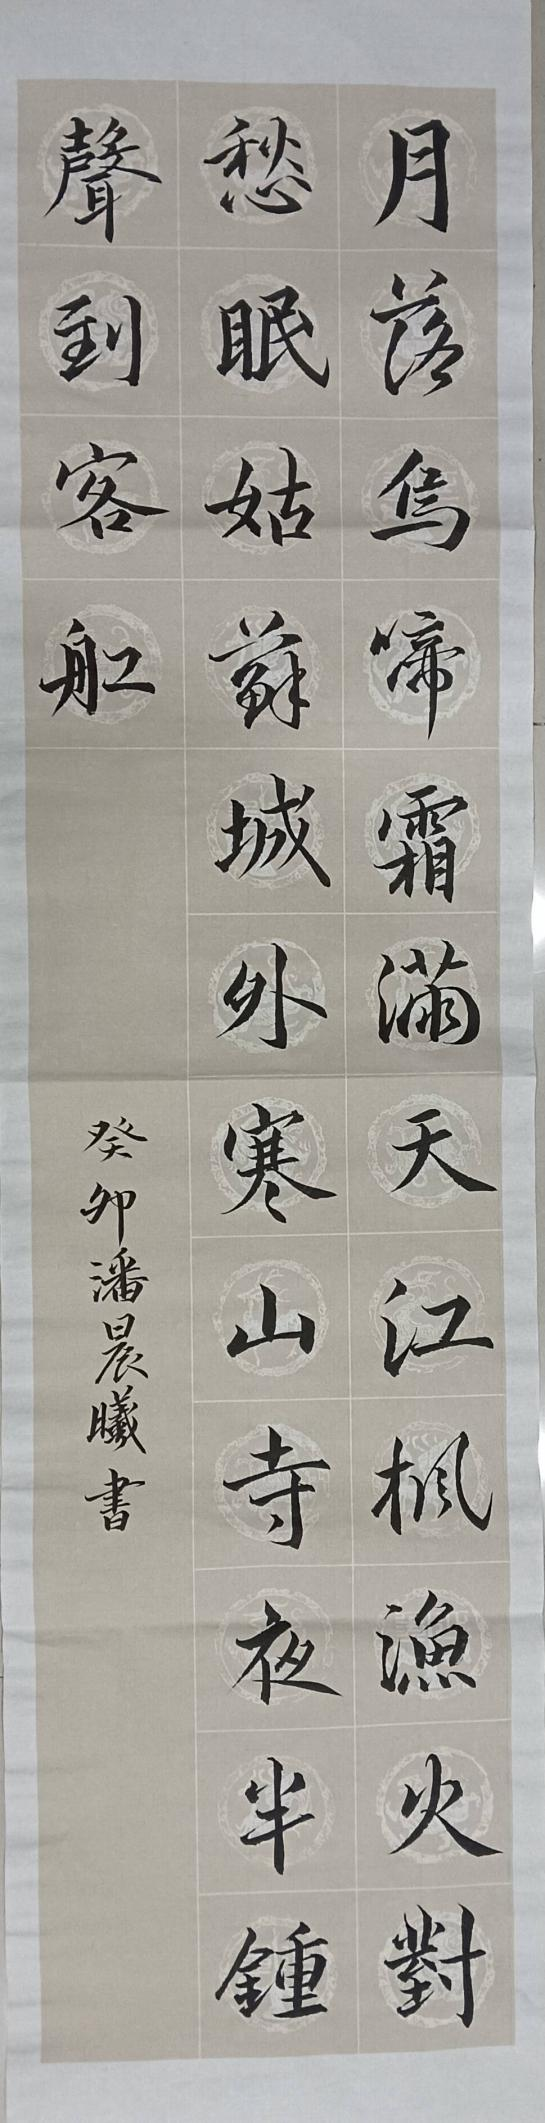 月落烏啼霜滿天江楓漁火對
愁眠姑蘇城外寒山寺夜半鍾
聲到客舡
癸卯潘晨曦書